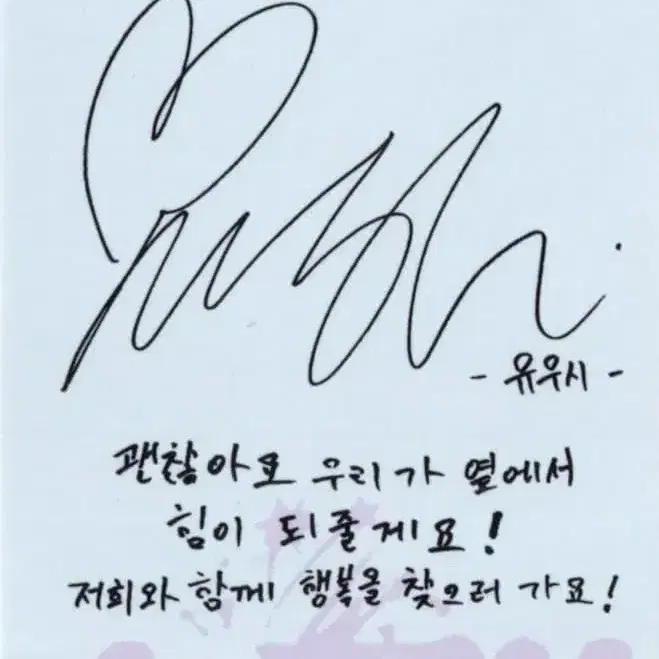 - 유우시 -
괜찮아요 우리가 옆에서
힘이 되줄게요!
저희와 함께 행복을 찾으러 가요!